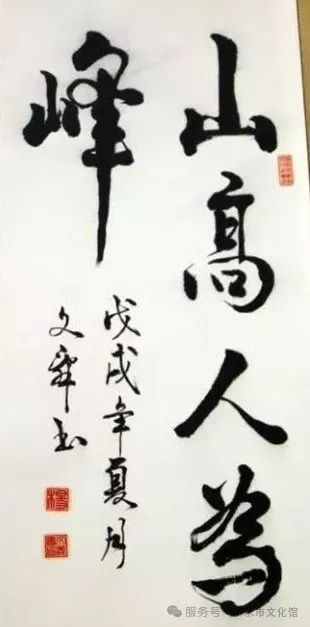 山高人為
峰
戊戌年夏月
文书
服务号 水市文化馆